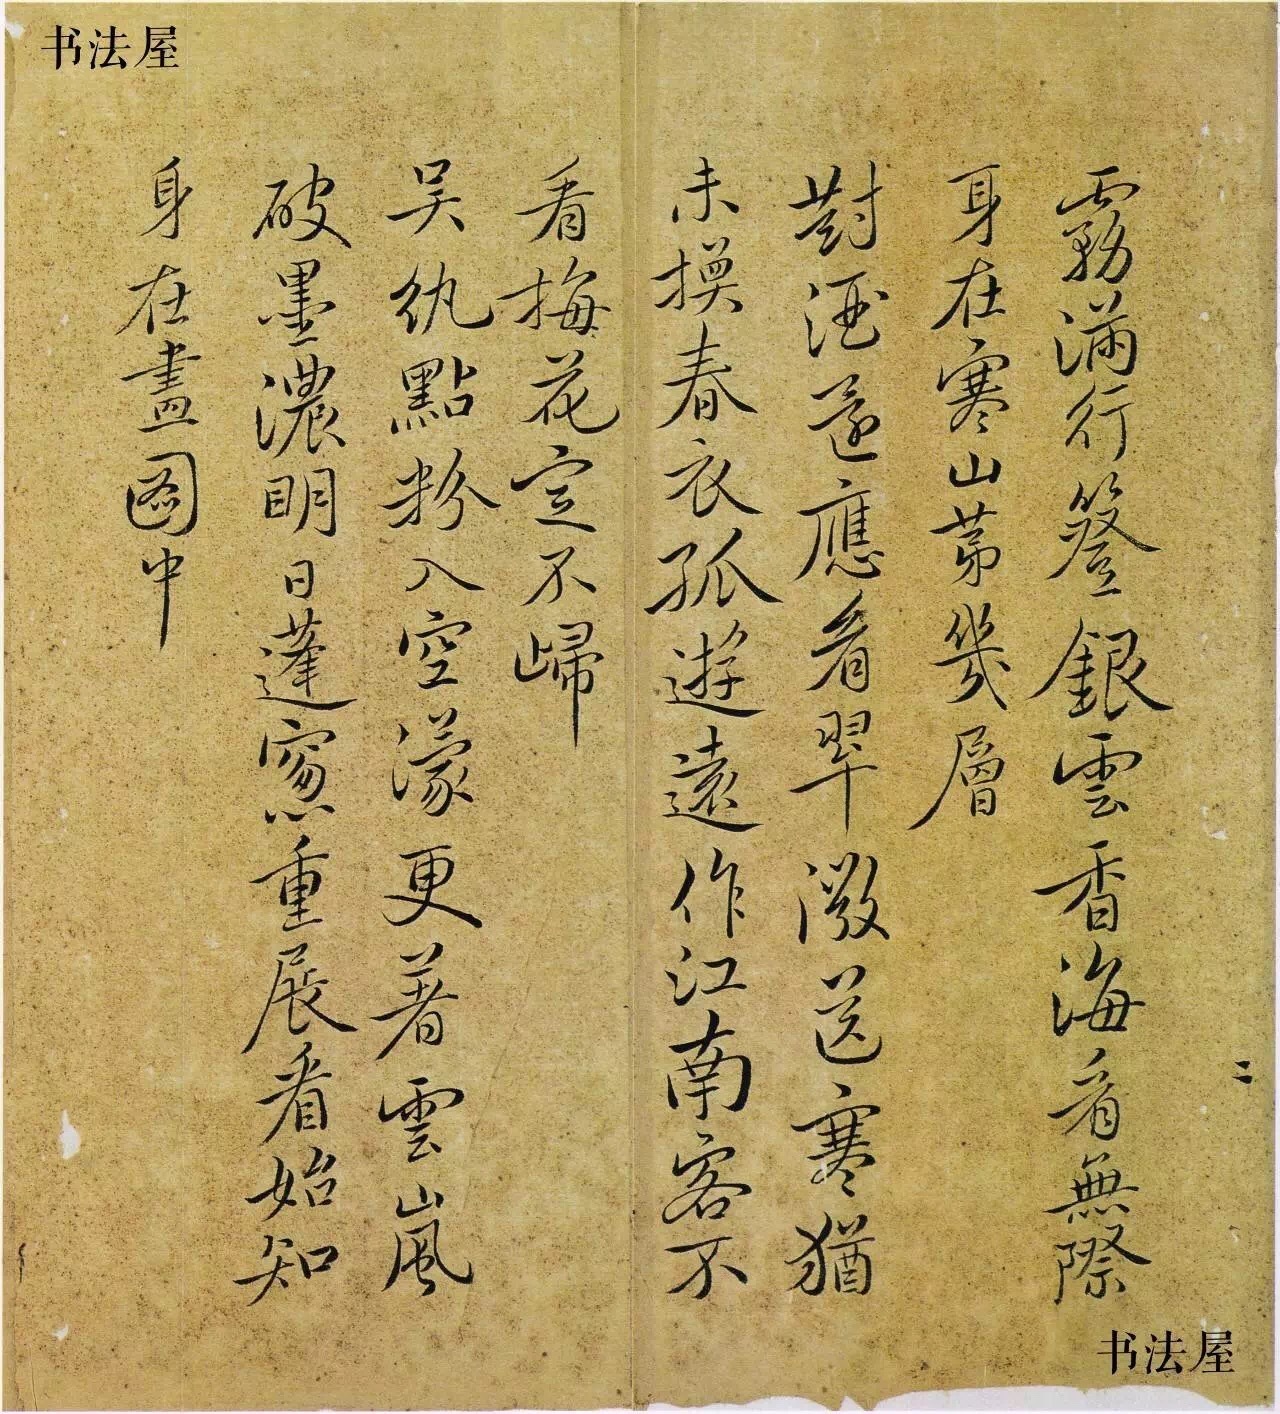 书法屋
霧滿行簦銀雲香海看無際
身在寒山第幾層
對酒還應看翠微送寒猶
未換春衣孤遊遠作江南客不
看梅花定不歸
吴紈點粉入空濛更著雲嵐
破墨濃明日蓬窓重展看始知
身在畫圖中
二
书法屋